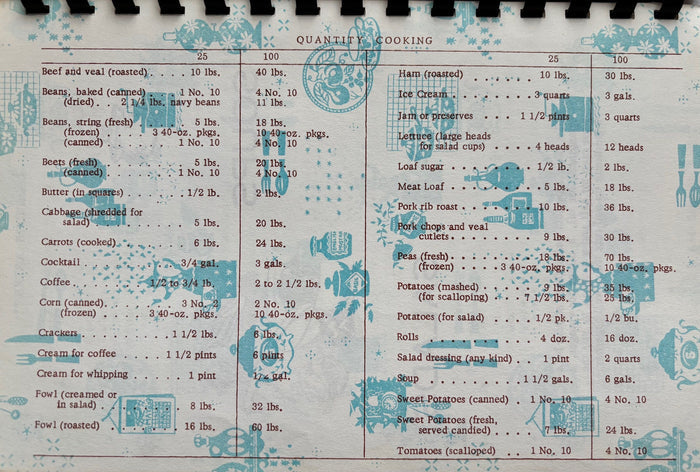 QUANTITY COOKING
25 100
Beef and veal (roasted) . . . . 10 lbs. 40 lbs.
Beans, baked (canned) . . . . 1 No. 10 4 No. 10
(dried) . . 2 1/4 lbs. navy beans 11 lbs.
Beans, string (fresh) . . . . 5 lbs. 18 lbs.
(frozen) . . . . 3 40-oz. pkgs. 10 40-oz. pkgs.
(canned) . . . . 1 No. 10 4 No. 10
Beets (fresh) . . . . 5 lbs. 20 lbs.
(canned) . . . . 1 No. 10 4 No. 10
Butter (in squares) . . . . 1/2 lb. 2 lbs.
Cabbage (shredded for
salad) . . . . 5 lbs. 20 lbs.
Carrots (cooked) . . . . 6 lbs. 24 lbs.
Cocktail . . . . 3/4 gal. 3 gals.
Coffee . . . . 1/2 to 3/4 lb. 2 to 2 1/2 lbs.
Corn (canned) . . . . 3 No. 2 2 No. 10
(frozen) . . . . 3 40-oz. pkgs. 10 40-oz. pkgs.
Crackers . . . . 1 1/2 lbs. 6 lbs.
Cream for coffee . . . . 1 1/2 pints 6 pints
Cream for whipping . . . . 1 pint 1/2 gal.
Fowl (creamed or
in salad) . . . . 8 lbs. 32 lbs.
Fowl (roasted) . . . . 16 lbs. 60 lbs.
25 100
Ham (roasted) . . . . 10 lbs. 30 lbs.
Ice Cream . . . . 3 quarts 3 gals.
Jam or preserves . . . . 1 1/2 pints 3 pints
Lettuce (large heads
for salad cups) . . . . 4 heads 12 heads
Loaf sugar . . . . 1/2 lb. 2 lbs.
Meat Loaf . . . . 5 lbs. 18 lbs.
Pork rib roast . . . . 10 lbs. 36 lbs.
Pork chops and veal
cutlets . . . . 9 lbs. 30 lbs.
Peas (fresh) . . . . 18 lbs. 70 lbs.
(frozen) . . . . 3 40-oz. pkgs. 10 40-oz. pkgs.
Potatoes (mashed) . . . . 9 lbs. 35 lbs.
(for scalloping) . . . . 7 1/2 lbs. 25 lbs.
Potatoes (for salad) . . . . 1/2 pk. 1/2 bu.
Rolls . . . . 4 doz. 16 doz.
Salad dressing (any kind) . . . . 1 pint 2 quarts
Soup . . . . 1 1/2 gals. 6 gals.
Sweet Potatoes (canned) . . . . 1 No. 10 4 No. 10
Sweet Potatoes (fresh,
served candied) . . . . 7 lbs. 24 lbs.
Tomatoes (scalloped) . . . . 1 No. 10 4 No. 10